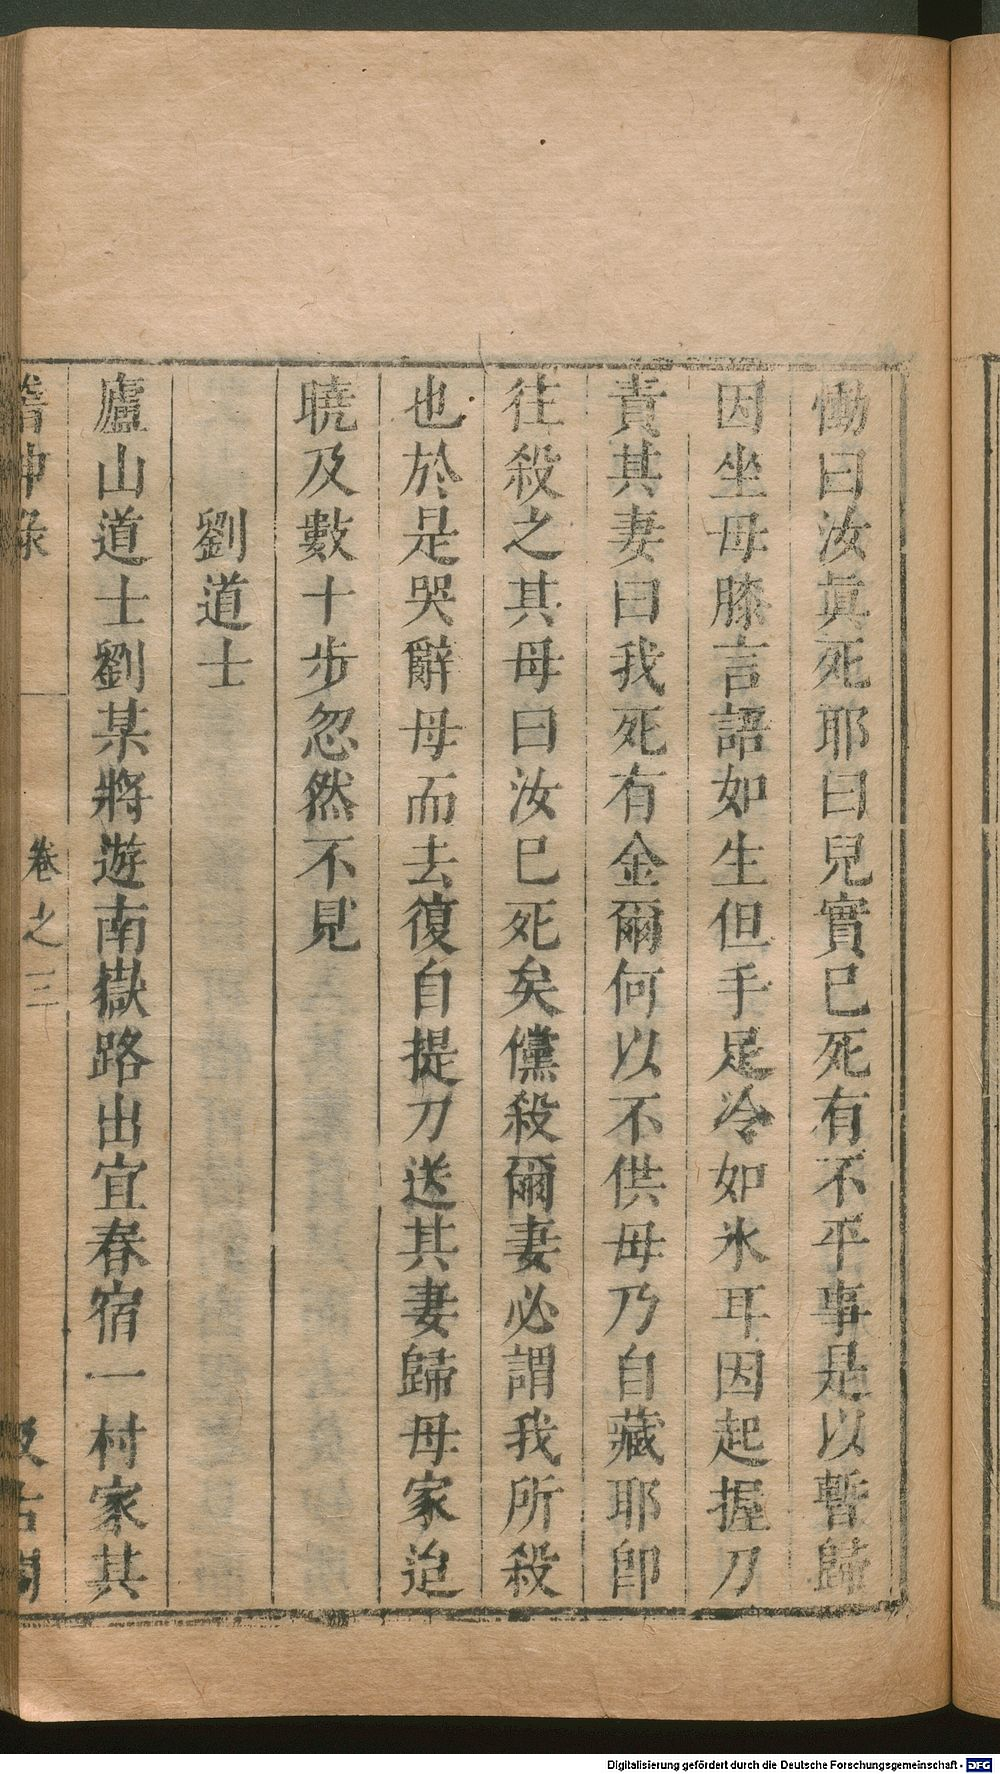 慟曰汝眞死耶曰兒實已死有不平事是以暫歸
因坐母膝言語如生但手足冷如氷耳因起握刀
責其妻曰我死有金爾何以不供母乃自藏耶卽
往殺之其母曰汝已死矣儻殺爾妻必謂我所殺
也於是哭辭母而去復自提刀送其妻歸母家迨
曉及數十步忽然不見
劉道士
廬山道士劉某將遊南嶽路出宜春宿一村家其
稽神錄 卷之三 汲古閣
Digitalisierung gefördert durch die Deutsche Forschungsgemeinschaft - DFG